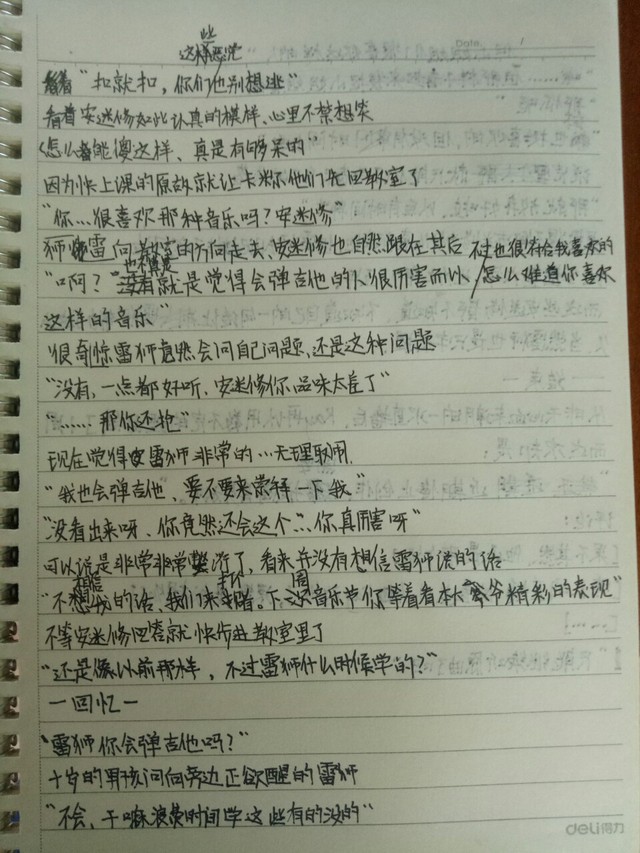 些
这样恶党
看着“扣就扣，你们也别想逃”
看着安迷修如此认真的模样、心里不禁想笑
（怎么能傻这样、真是有够呆的
因为快上课的原故就让卡米尔他们先回教室了
“你…很喜欢那种音乐吗？安迷修”
狮雷向教室的方向走去、安迷修也自然跟在其后 不过也很符合我喜欢的
“啊？”也不算是就是觉得会弹吉他的人很厉害而以／怎么难道你喜欢
这样的音乐”
很奇惊雷狮竟然会问自己问题，还是这种问题
“没有，一点都好听，安迷修你品味太差了”
“……那你还抢”
现在觉得雷狮非常的…无理取闹.
“我也会弹吉他，要不要来崇拜一下我”
“没看出来呀、你竟然还会这个…你真厉害呀”
可以说是非常非常敷衍了，看来并没有想信雷狮说的话
相信 打 周
“不想我的话、我们来赌。下次音乐节你等着看本大爷精彩的表现”
不等安迷修回答就快步进教室里了
“还是像以前那样，不过雷狮什么时候学的？”
一回忆一
“雷狮你会弹吉他吗？”
十岁的男孩问向旁边正欲醒的雷狮
“不会、干嘛浪费时间学这些有的没的”
deli得力
Date